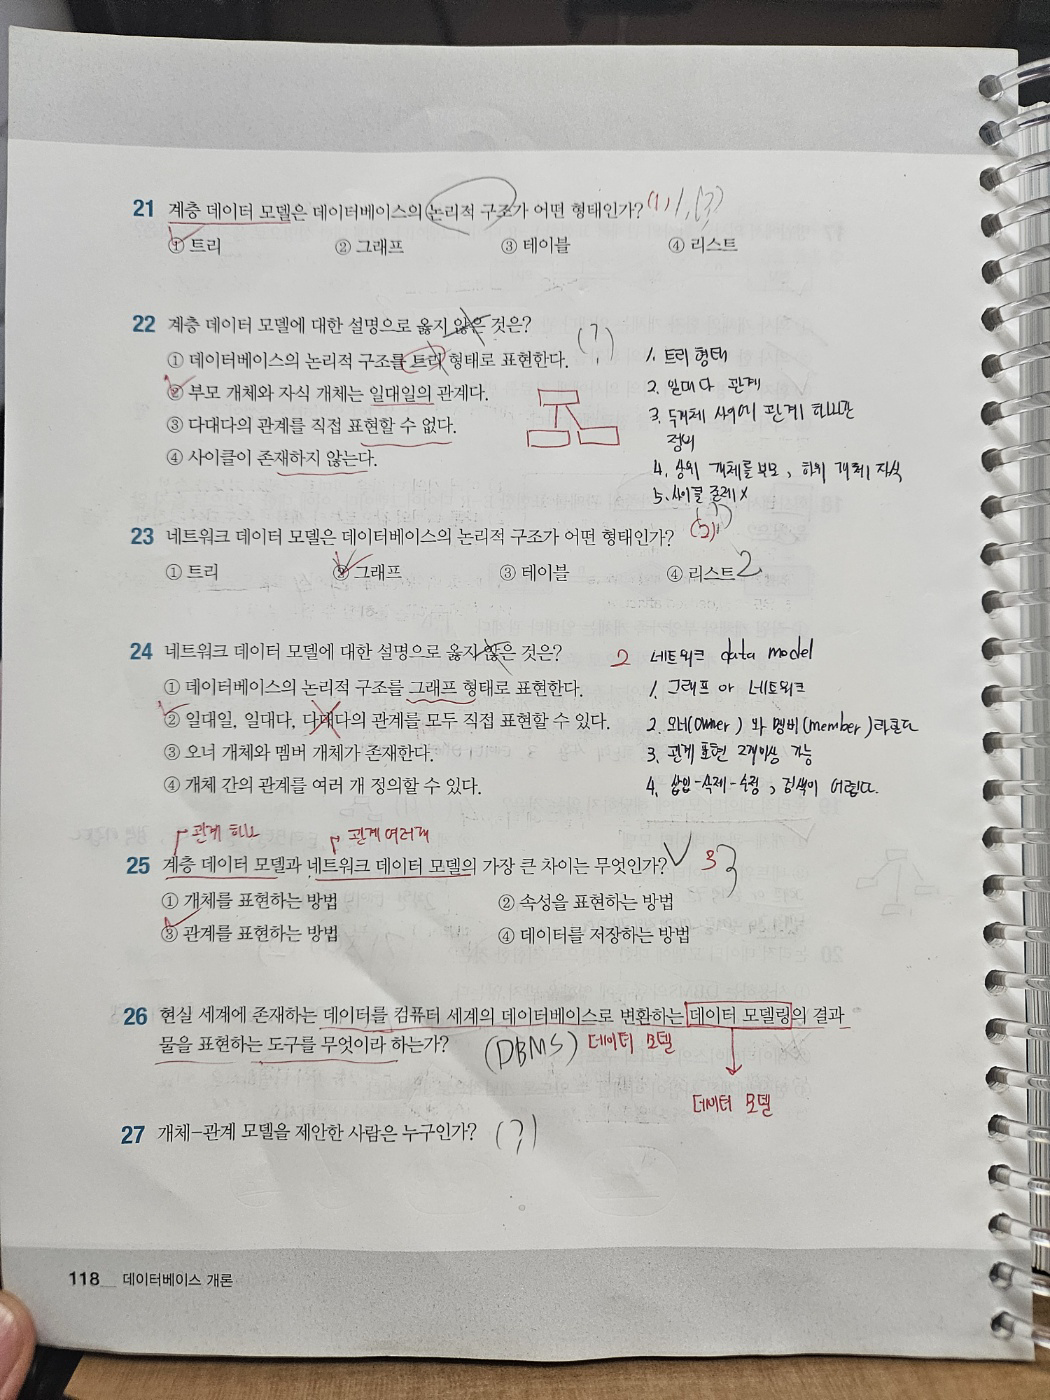 21 계층 데이터 모델은 데이터베이스의 논리적 구조가 어떤 형태인가? (1) 1, (?)
① 트리 ② 그래프 ③ 테이블 ④ 리스트
22 계층 데이터 모델에 대한 설명으로 옳지 않은 것은?
(?)
① 데이터베이스의 논리적 구조를 트리 형태로 표현한다.
② 부모 개체와 자식 개체는 일대일의 관계다.
③ 다대다의 관계를 직접 표현할 수 없다.
④ 사이클이 존재하지 않는다.
1. 트리 형태
2. 일대다 관계
3. 두개체 사이에 관계 하나만
정의
4. 상위 개체를 부모, 하위 개체 자식
5. 사이클 존재 X
23 네트워크 데이터 모델은 데이터베이스의 논리적 구조가 어떤 형태인가?
① 트리 ② 그래프 ③ 테이블 ④ 리스트 2
24 네트워크 데이터 모델에 대한 설명으로 옳지 않은 것은? 2
① 데이터베이스의 논리적 구조를 그래프 형태로 표현한다.
② 일대일, 일대다, 다대다의 관계를 모두 직접 표현할 수 있다.
③ 오너 개체와 멤버 개체가 존재한다.
④ 개체 간의 관계를 여러 개 정의할 수 있다.
네트워크 data model
1. 그래프 or 네트워크
2. 오너(owner) 와 멤버(member)라쓴다
3. 관계 표현 2개이상 가능
4. 삽입-삭제-수정, 검색이 어렵다.
관계 하나 관계 여러개
25 계층 데이터 모델과 네트워크 데이터 모델의 가장 큰 차이는 무엇인가? 3 3
① 개체를 표현하는 방법 ② 속성을 표현하는 방법
③ 관계를 표현하는 방법 ④ 데이터를 저장하는 방법
26 현실 세계에 존재하는 데이터를 컴퓨터 세계의 데이터베이스로 변환하는 데이터 모델링의 결과
물을 표현하는 도구를 무엇이라 하는가? (DBMS) 데이터 모델
데이터 모델
27 개체-관계 모델을 제안한 사람은 누구인가? (?)
118 데이터베이스 개론